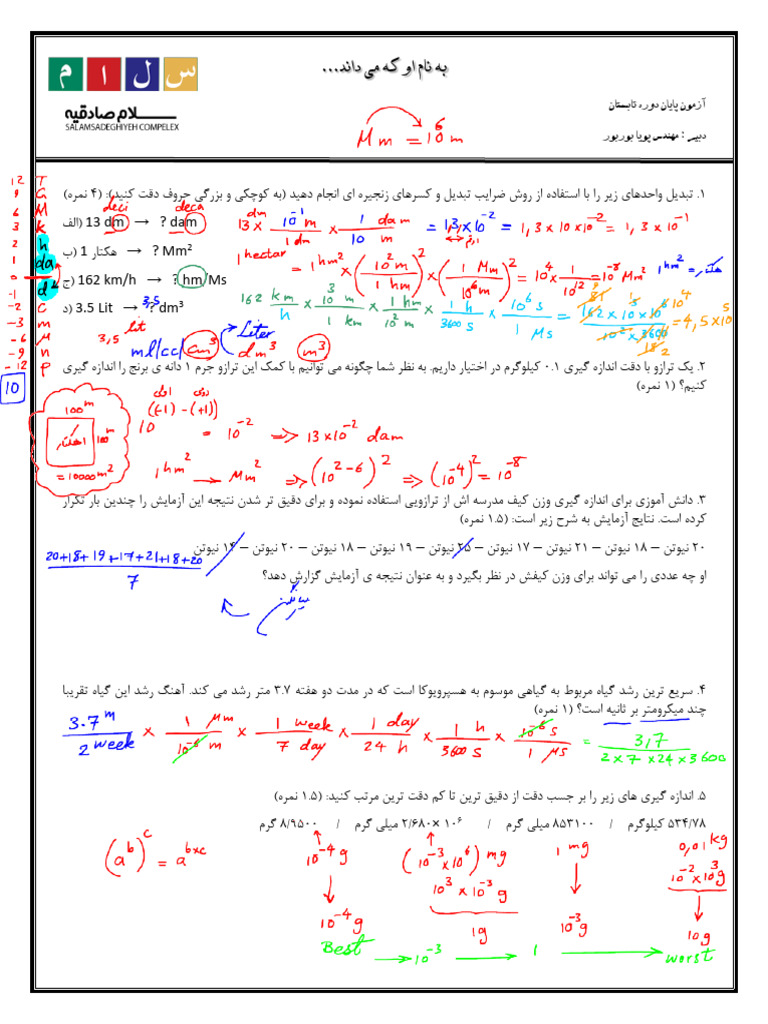 به نام او که می داند...
س ل ا م
ســـــلام صادقیه
SALAMSADEGHIYEH COMPELEX
آزمون پایان دوره تابستان
دبیر : مهندس پویا بوربور
Mm = 10^6 m
۱. تبدیل واحدهای زیر را با استفاده از روش ضرایب تبدیل و کسرهای زنجیره ای انجام دهید (به کوچکی و بزرگی حروف دقت کنید): (۴ نمره)
deci deca
الف) 13 dm → ? dam
13 dm × 10^-1 m / 1 dm × 1 dam / 10 m = 1,3×10^-2 = 1,3×10×10^-2 = 1,3×10^-1
ب) 1 هکتار → ? Mm²
1 hectar = 1 hm² × (10² m / 1 hm)² × (1 Mm / 10^6 m)² = 10^4 × 1 / 10^12 = 10^-8 Mm²
1 hm² = هکتار
ج) 162 km/h → ? hm/Ms
162 km / h × 10^3 m / 1 km × 1 hm / 10² m × 1 h / 3600 s × 10^6 s / 1 Ms = 162×10×10^6 / 3600 = 4,5×10^5
د) 3.5 Lit → ? dm³
3,5
3,5 lit
ml/cc/cm³
Liter
dm³ m³
12 T
9 G
6 M
3 k
2 h
1 da
0
-1 d
-2 c
-3 m
-6 μ
-9 n
-12 P
10
۲. یک ترازو با دقت اندازه گیری ۰.۱ کیلوگرم در اختیار داریم. به نظر شما چگونه می توانیم با کمک این ترازو جرم ۱ دانه ی برنج را اندازه گیری
کنیم؟ (۱ نمره)
100 m
100 m
۱ هکتار
= 10000 m²
اولی دومی
10^((-1) - (+1)) = 10^-2 => 13×10^-2 dam
1 hm² → Mm² => (10^(2-6))² => (10^-4)² = 10^-8
۳. دانش آموزی برای اندازه گیری وزن کیف مدرسه اش از ترازویی استفاده نموده و برای دقیق تر شدن نتیجه این آزمایش را چندین بار تکرار
کرده است. نتایج آزمایش به شرح زیر است: (۱.۵ نمره)
۲۰ نیوتن – ۱۸ نیوتن – ۲۱ نیوتن – ۱۷ نیوتن – ۲۵ نیوتن – ۱۹ نیوتن – ۱۸ نیوتن – ۲۰ نیوتن – ۱۴ نیوتن
20+18+19+17+21+18+20 / 7
او چه عددی را می تواند برای وزن کیفش در نظر بگیرد و به عنوان نتیجه ی آزمایش گزارش دهد؟
میانگین
۴. سریع ترین رشد گیاه مربوط به گیاهی موسوم به هسپرویوکا است که در مدت دو هفته ۳.۷ متر رشد می کند. آهنگ رشد این گیاه تقریبا
چند میکرومتر بر ثانیه است؟ (۱ نمره)
3.7 m / 2 week × 1 μm / 10^-6 m × 1 week / 7 day × 1 day / 24 h × 1 h / 3600 s × 10^-6 s / 1 μs = 3,7 / 2×7×24×3600
۵. اندازه گیری های زیر را بر حسب دقت از دقیق ترین تا کم دقت ترین مرتب کنید: (۱.۵ نمره)
۵۳۴/۷۸ کیلوگرم / ۸۵۳۱۰۰ میلی گرم / ۲/۶۸۰ × ۱۰^۶ میلی گرم / ۸/۹۵۰۰ گرم
(a^b)^c = a^(b×c)
10^-4 g (10^-3 × 10^6) mg 1 mg 0,01 kg
10^3 × 10^-3 g 10^-2 × 10^3 g
10^-4 g 1g 10^-3 g 10g
Best → 10^-3 → 1 → worst